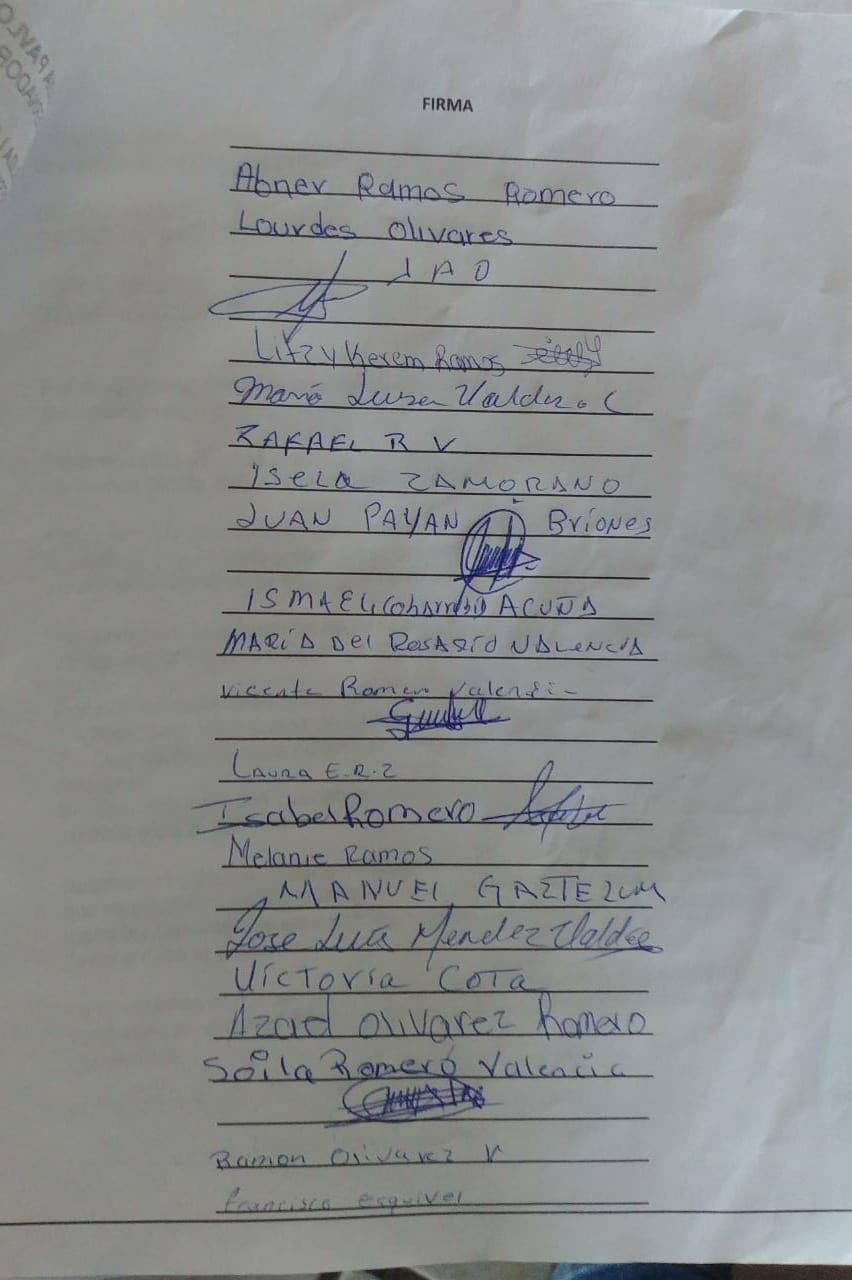 FIRMA
Abner Ramos Romero
Lourdes Olivares
J A O
Litzy Kerem Ramos
Maria Luisa Valdez C
RAFAEL R V
ISELA ZAMORANO
JUAN PAYAN Briones
ISMAEL ACUÑA
MARÍA Del ROSARIO VALENCIA
Vicente Romero Valencia
LAURA E.R.Z
Isabel Romero
Melanie Ramos
MANUEL GAZTELUM
Jose Luis Mendez Valdez
Victoria Cota
Azael Olivarez Romero
Soila Romero Valencia
Ramon Olivarez V
Francisco esquivel